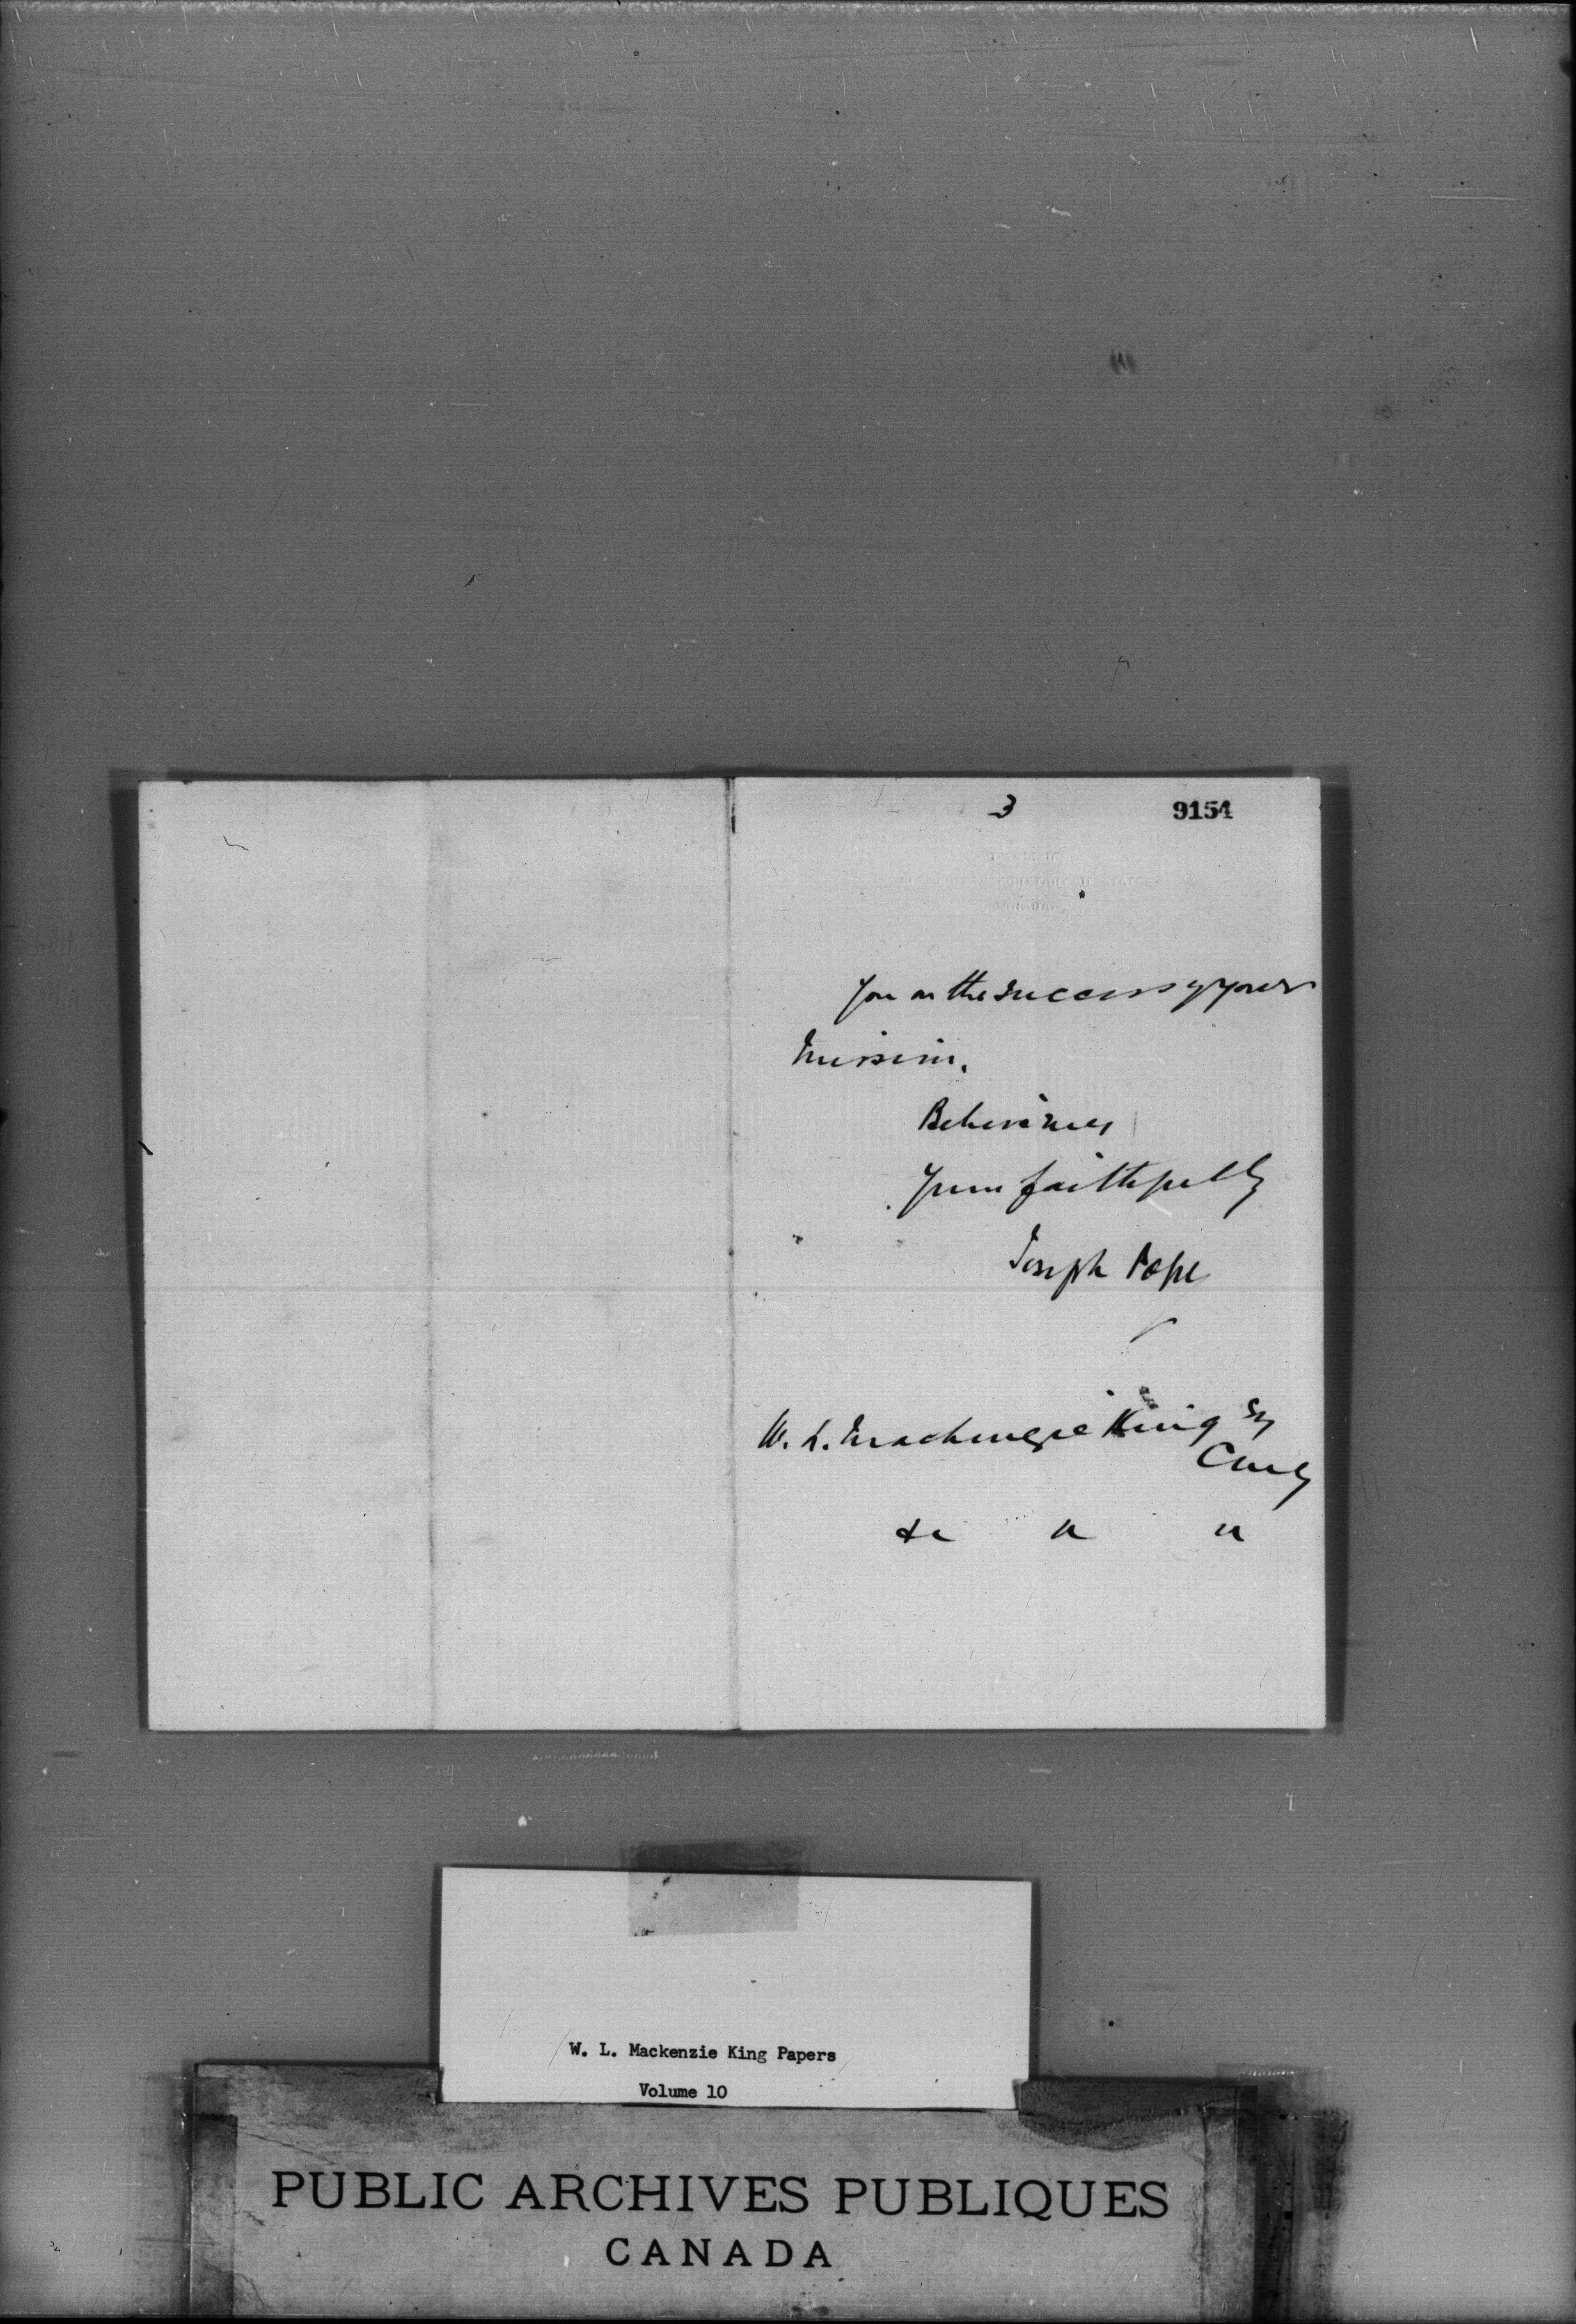 3
9154
OFFICE OF
CANADA
you on the success of your
mission.
Believe me
Yours faithfully
Joseph Pope
W. L. Mackenzie King Esq
CMG
&c " "
W. L. Mackenzie King Papers
Volume 10
PUBLIC ARCHIVES PUBLIQUES
CANADA